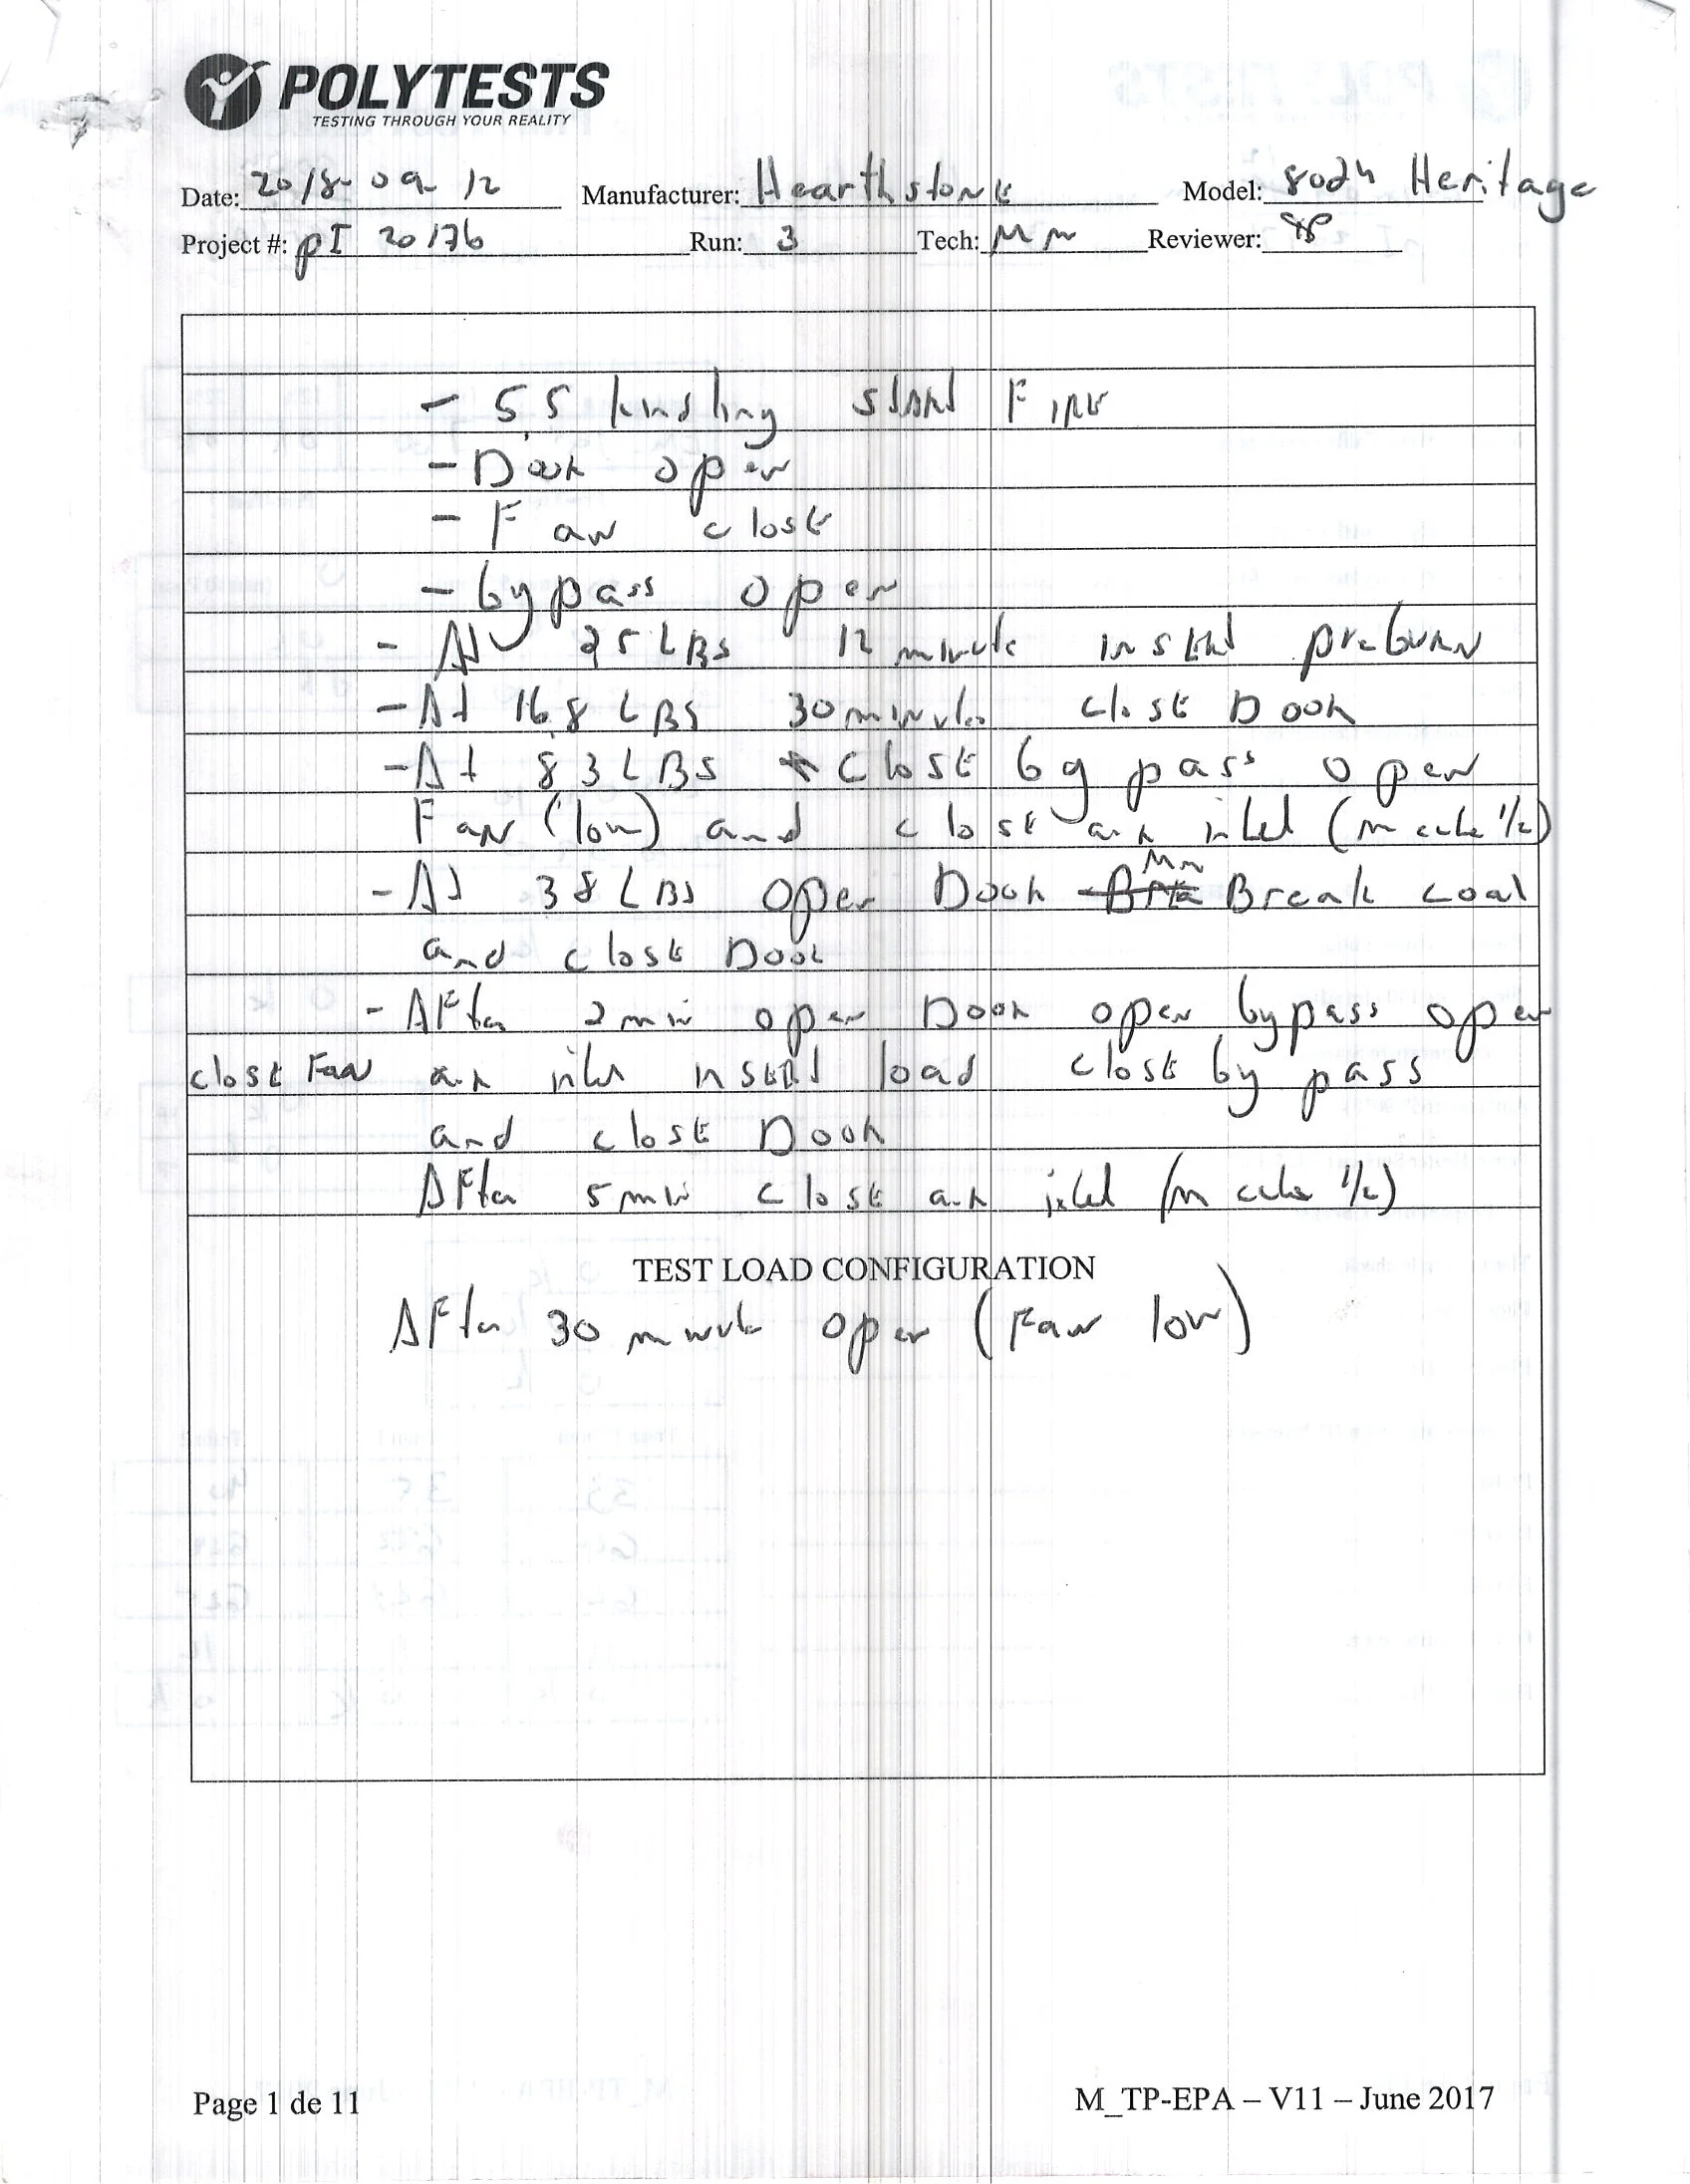 POLYTESTS
TESTING THROUGH YOUR REALITY
Date: 2018-09-12 Manufacturer: Hearthstone Model: 8024 Heritage
Project #: pI 20176 Run: 3 Tech: MM Reviewer:
- 5,5 kindling start Fire
- Door open
- Fan close
- bypass open
- At 25 LBS 12 minute insert preburn
- At 16,8 LBS 30 minute close Door
- At 8,3 LBS close bypass open
Fan (low) and close air inlet (1/2)
- At 3 8 LBS open Door Break coal
and close Door
- After 2 min open Door open bypass open
close Fan air inlet insert load close by pass
and close Door
After 5 min close air inlet (1/2)
TEST LOAD CONFIGURATION
After 30 minute open (Fan low)
Page 1 de 11 M_TP-EPA – V11 – June 2017